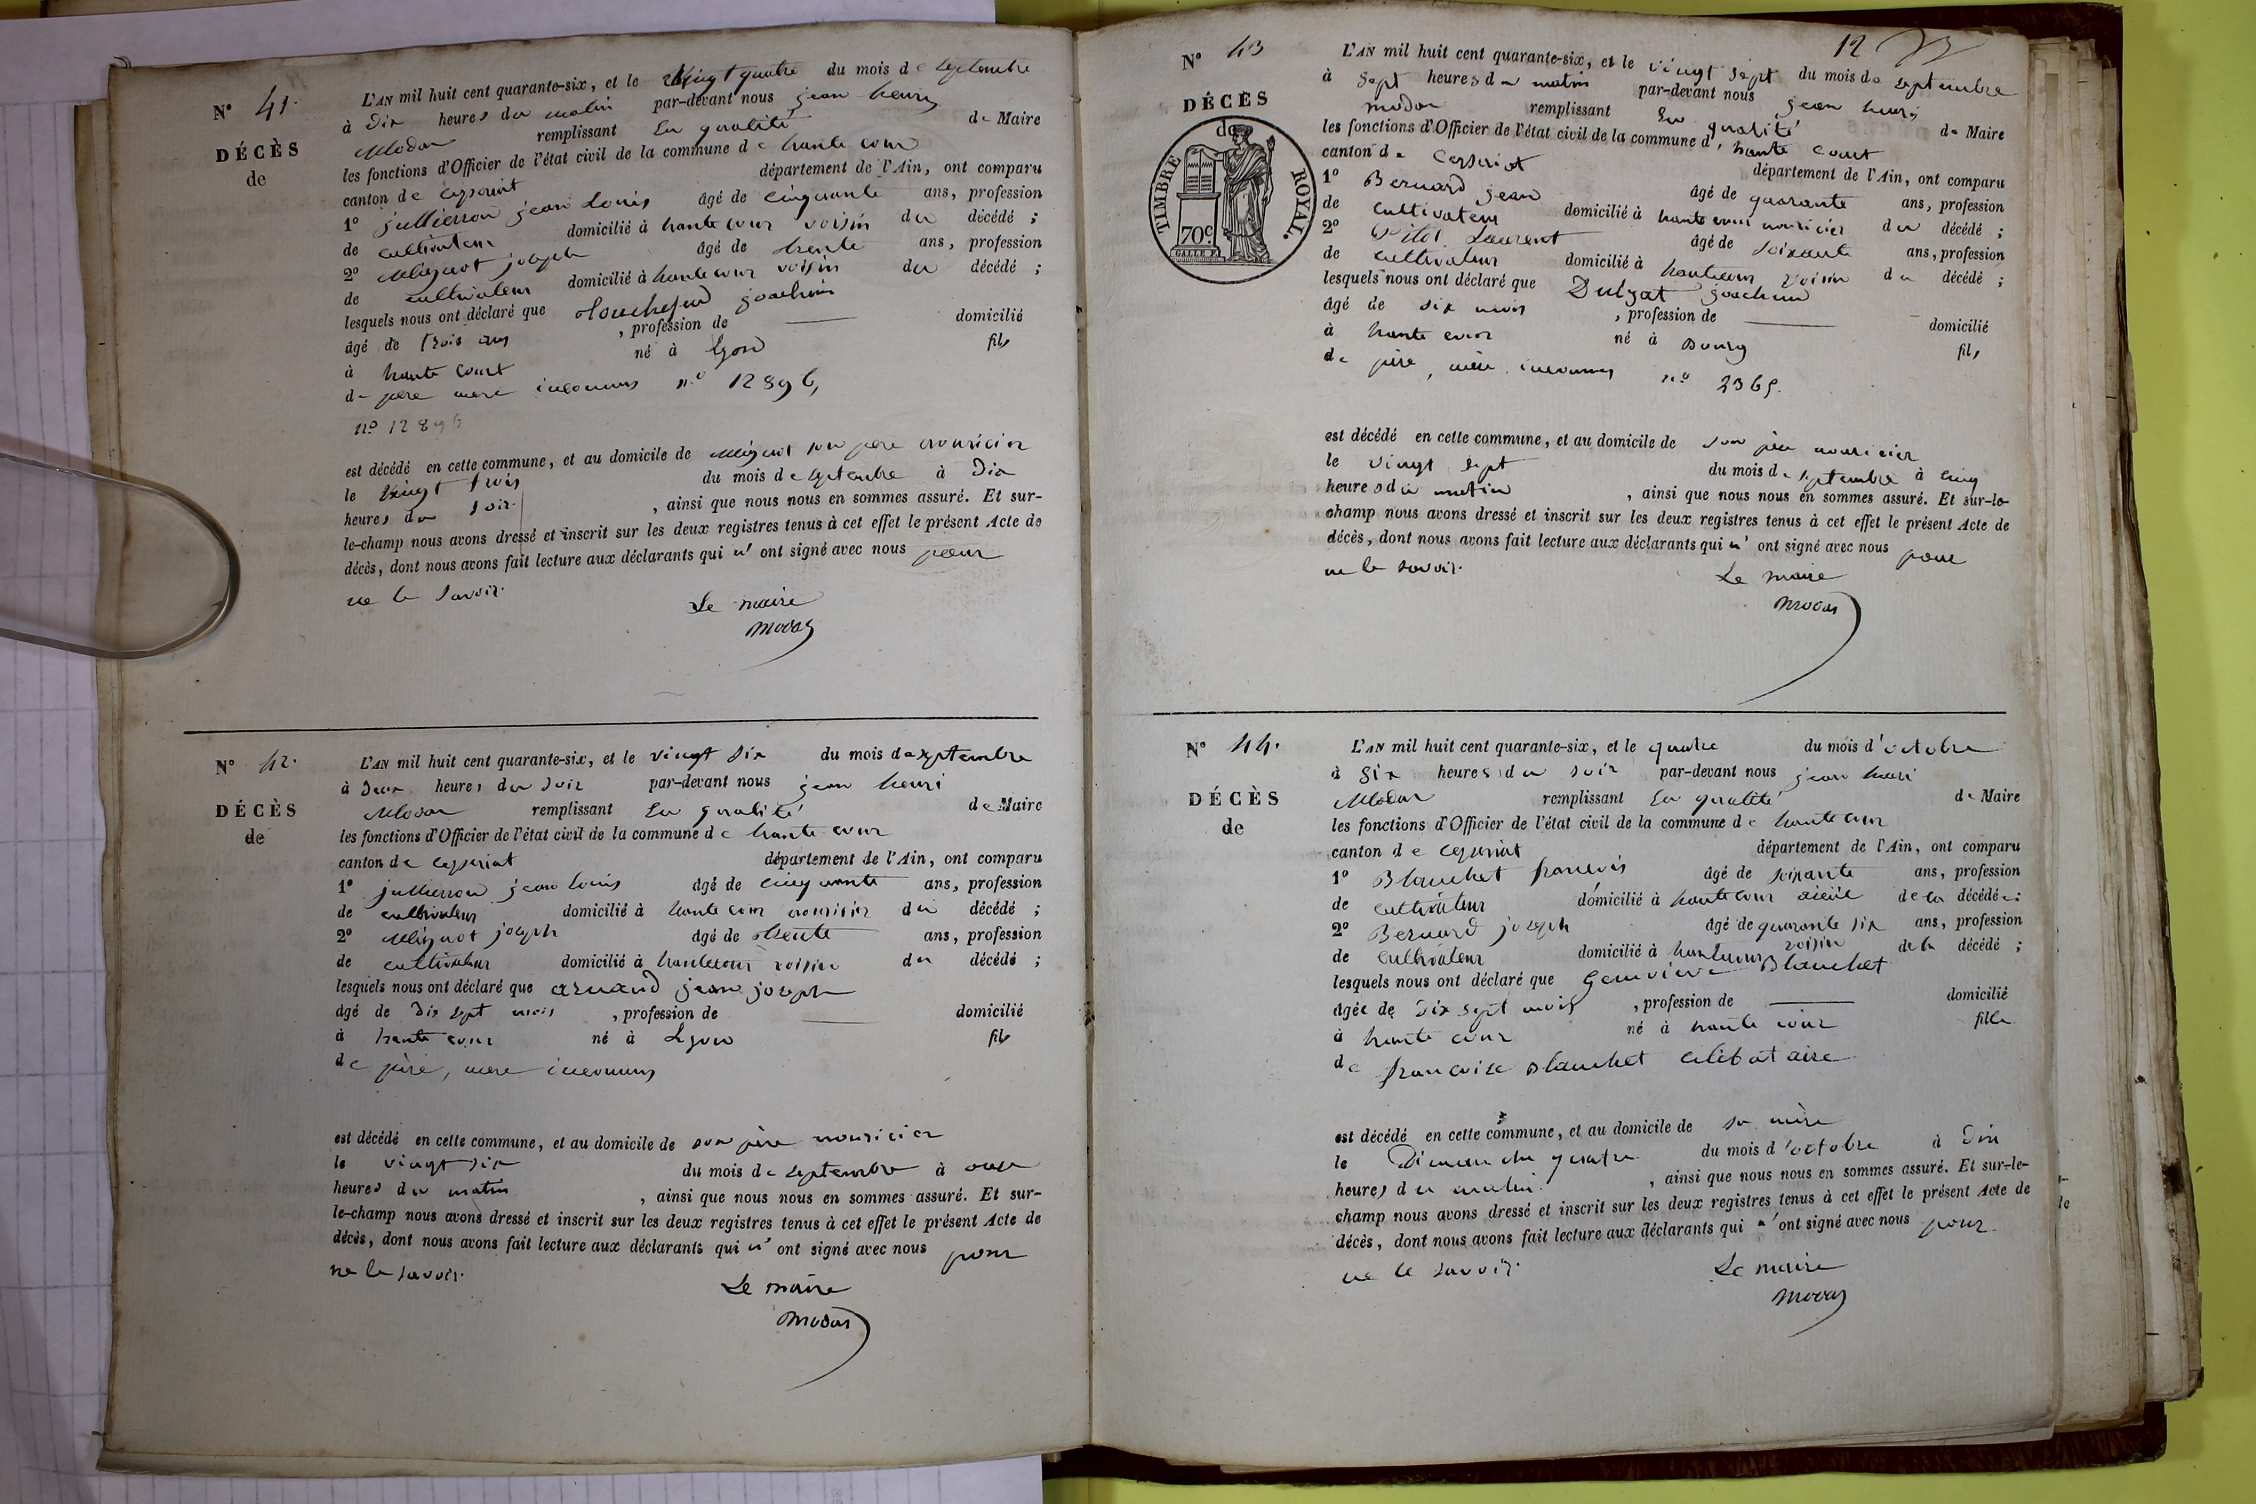 N° 41.
DÉCÈS
de
L'AN mil huit cent quarante-six, et le vingt quatre du mois de septembre
à Dix heures du matin par-devant nous jean henry
Modas remplissant En qualité de Maire
les fonctions d'Officier de l'état civil de la commune de haute cour
canton de ceyseriat département de l'Ain, ont comparu
1° jullierron jean Louis âgé de cinquante ans, profession
de cultivateur domicilié à haute cour voisin du décédé ;
2° Mignot joseph âgé de trente ans, profession
de cultivateur domicilié à haute cour voisin du décédé ;
lesquels nous ont déclaré que joachim
âgé de trois ans , profession de domicilié
à haute court né à Lyon fils
de pere mere inconnus n.° 12896,
n° 12896
est décédé en cette commune, et au domicile de Mignot son pere nouricier
le vingt trois du mois de septembre à Dix
heures du soir. , ainsi que nous nous en sommes assuré. Et sur-
le-champ nous avons dressé et inscrit sur les deux registres tenus à cet effet le présent Acte de
décès, dont nous avons fait lecture aux déclarants qui n' ont signé avec nous pour
ne le savoir.
Le maire
Modas
N° 42.
DÉCÈS
de
L'AN mil huit cent quarante-six, et le vingt six du mois de septembre
à Deux heures du soir par-devant nous jean henri
Modas remplissant En qualité de Maire
les fonctions d'Officier de l'état civil de la commune de haute cour
canton de ceyseriat département de l'Ain, ont comparu
1° jullierron jean louis âgé de cinquante ans, profession
de cultivateur domicilié à haute cour nouricier du décédé ;
2° Mignot joseph âgé de trente ans, profession
de cultivateur domicilié à hautecour voisin du décédé ;
lesquels nous ont déclaré que arnaud jean joseph
âgé de Dix sept mois , profession de domicilié
à haute cour né à Lyon fils
de père, mere inconnus
est décédé en cette commune, et au domicile de son père nouricier
le vingt six du mois de septembre à onze
heures du matin , ainsi que nous nous en sommes assuré. Et sur-
le-champ nous avons dressé et inscrit sur les deux registres tenus à cet effet le présent Acte de
décès, dont nous avons fait lecture aux déclarants qui n' ont signé avec nous pour
ne le savoir.
Le maire
Modas
12
N° 43
DÉCÈS
de
TIMBRE ROYAL.
70c
L'AN mil huit cent quarante-six, et le vingt sept du mois de septembre
à sept heures du matin par-devant nous jean henry
modas remplissant En qualité de Maire
les fonctions d'Officier de l'état civil de la commune d' haute court
canton de ceyseriat département de l'Ain, ont comparu
1° Bernard jean âgé de quarante ans, profession
de cultivateur domicilié à haute cour nouricier du décédé ;
2° Pilot Laurent âgé de soixante ans, profession
de cultivateur domicilié à hautecour voisin du décédé ;
lesquels nous ont déclaré que joachim
âgé de six mois , profession de domicilié
à haute cour né à Bourg fils
de père, mère inconnus n° 2365.
est décédé en cette commune, et au domicile de son père nouricier
le vingt sept du mois de septembre à cinq
heures du matin , ainsi que nous nous en sommes assuré. Et sur-le-
champ nous avons dressé et inscrit sur les deux registres tenus à cet effet le présent Acte de
décès, dont nous avons fait lecture aux déclarants qui n' ont signé avec nous pour
ne le savoir.
Le maire
Modas
N° 44.
DÉCÈS
de
L'AN mil huit cent quarante-six, et le quatre du mois d'octobre
à Six heures du soir par-devant nous jean henri
Modas remplissant En qualité de Maire
les fonctions d'Officier de l'état civil de la commune de haute cour
canton de ceyseriat département de l'Ain, ont comparu
1° Blanchet francois âgé de soixante ans, profession
de cultivateur domicilié à hautecour de la décédée ;
2° Bernard joseph âgé de quarante six ans, profession
de cultivateur domicilié à hautecour voisin de la décédé ;
lesquels nous ont déclaré que Genevieve Blanchet
âgée de Dix sept mois , profession de domicilié
à haute cour né à haute cour fille
de francoise Blanchet célibataire
est décédé en cette commune, et au domicile de sa mère
le Dimanche quatre du mois d'octobre à Dix
heures du matin. , ainsi que nous nous en sommes assuré. Et sur-le-
champ nous avons dressé et inscrit sur les deux registres tenus à cet effet le présent Acte de
décès, dont nous avons fait lecture aux déclarants qui n' ont signé avec nous pour
ne le savoir.
Le maire
Modas